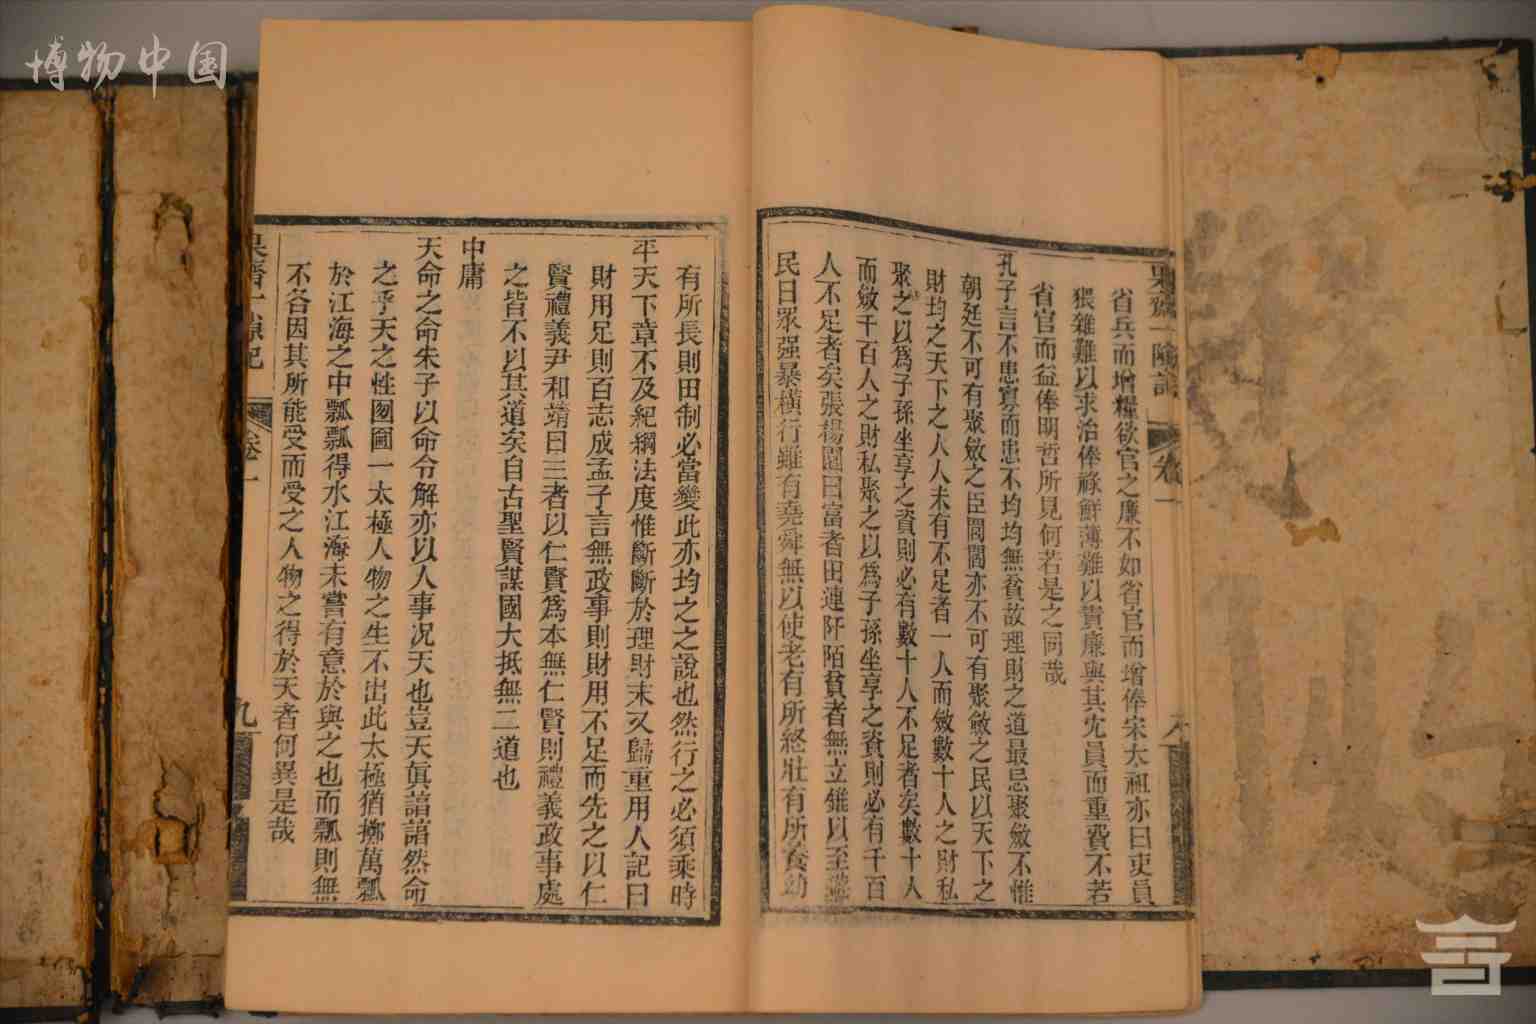 博物中国
省兵而增糧欲官之廉不如省官而增俸宋太祖亦曰吏員
猥雜難以求治俸祿鮮薄難以責廉與其宂員而重費不若
省官而益俸明哲所見何若是之同哉
孔子言不患寡而患不均均無貧故理財之道最忌聚斂不惟
朝廷不可有聚斂之臣閭閻亦不可有聚斂之民以天下之
財均之天下之人人未有不足者一人而斂數十人之財私
聚之以爲子孫坐享之資則必有數十人不足者矣數十人
而斂千百人之財私聚之以爲子孫坐享之資則必有千百
人不足者矣張楊園曰富者田連阡陌貧者無立錐以至
民日眾强暴橫行雖有堯舜無以使老有所終壯有所養幼
有所長則田制必當變此亦均之之說也然行之必須乘時
平天下章不及紀綱法度惟斷斷於理財末又歸重用人記曰
財用足則百志成孟子言無政事則財用不足而先之以仁
賢禮義尹和靖曰三者以仁賢爲本無仁賢則禮義政事處
之皆不以其道矣自古聖賢謀國大抵無二道也
中庸
天命之命朱子以命令解亦以人事况天也豈天眞諄諄然命
之乎天之性囫圇一太極人物之生不出此太極猶擲萬瓢
於江海之中瓢瓢得水江海未嘗有意於與之也而瓢則無
不各因其所能受而受之人物之得於天者何異是哉
卷一
九